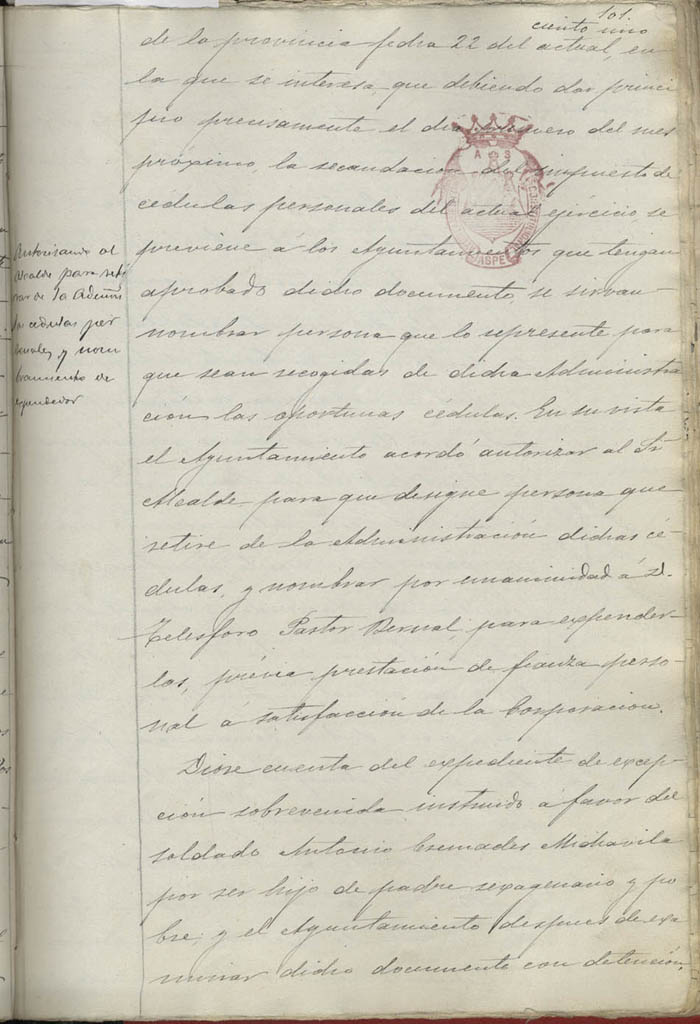 101.
ciento uno
de la provincia fecha 22 del actual, en
la que se interesa, que debiendo dar princi
pio precisamente el dia primero del mes
próximo, la recaudación del impuesto de
cédulas personales del actual ejercicio, se
previene á los Ayuntamientos que tengan
aprobado dicho documento, se sirvan
nombrar persona que lo represente para
que sean recogidas de dicha Administra
ción las oportunas cédulas. En su vista
el Ayuntamiento acordó autorizar al Sr
Alcalde para que designe persona que
retire de la Administración dichas cé-
dulas, y nombrar por unanimidad á D.
Telesforo Pastor Bernal, para expender-
las, prévia prestación de fianza perso-
nal á satisfacción de la Corporación.
Diose cuenta del expediente de excep-
ción sobrevenida instruido á favor del
soldado Antonio Cremades Michavila
por ser hijo de padre sexagenario y po-
bre; y el Ayuntamiento despues de exa-
minar dicho documento con detención,
Autorizando al
Alcalde para reti
rar de la Admón
las cédulas per
sonales y nom
bramiento de
expendedor
A S
ASPE